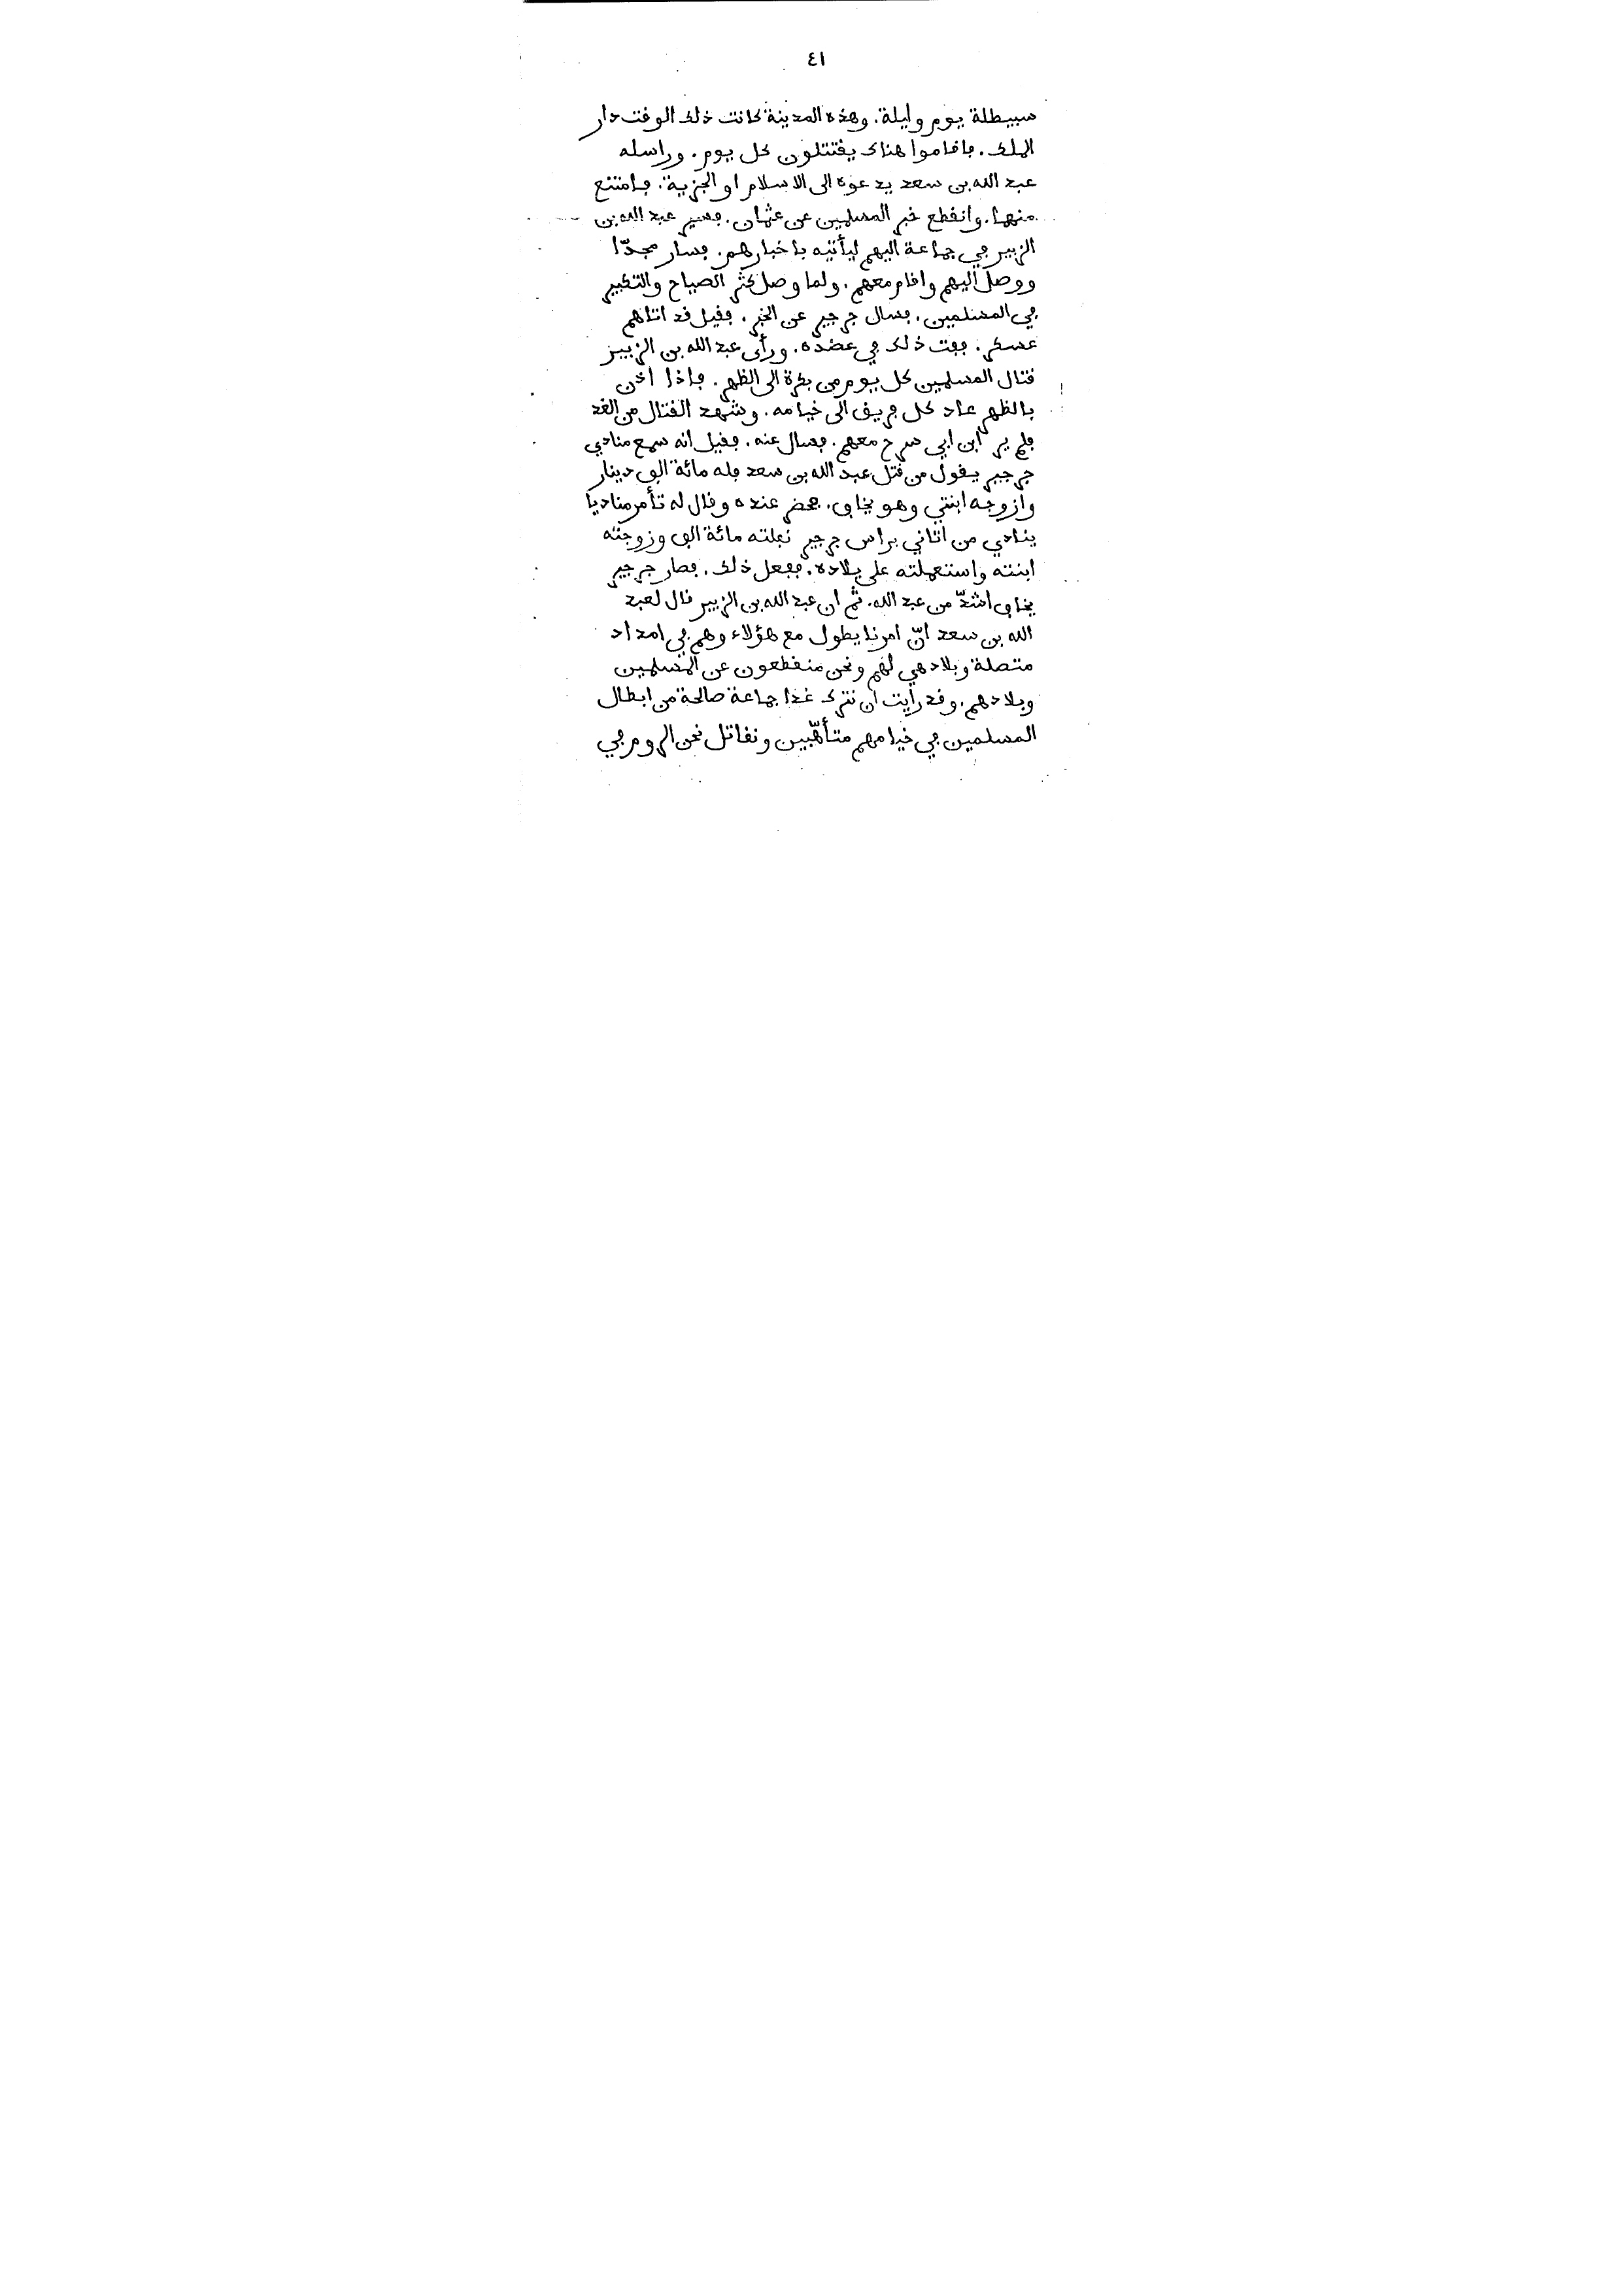 ٤١
سبيطلة يوم وليلة. وهذه المدينة كانت ذلك الوقت دار
الملك. فاقاموا هناك يقتتلون كل يوم. وراسله
عبد الله بن سعد يدعوه الى الاسلام او الجزية. فامتنع
منهما. وانقطع خبر المسلمين عن عثمان. فسير عبد الله بن
الزبير في جماعة اليهم ليأتيه باخبارهم. فسار مجدّا
ووصل اليهم واقام معهم. ولما وصل كثر الصياح والتكبير
في المسلمين. فسال جرجير عن الخبر. فقيل قد اتاهم
عسكر. ففت ذلك في عضده. ورأى عبد الله بن الزبير
قتال المسلمين كل يوم من بكرة الى الظهر. فاذا اذن
بالظهر عاد كل فريق الى خيامه. وشهد القتال من الغد
فلم ير ابن ابي سرح معهم. فسال عنه. فقيل انه سمع منادي
جرجير يقول من قتل عبد الله بن سعد فله مائة الف دينار
وازوجه ابنتي وهو يخاف. فحضر عنده وقال له تأمر مناديا
ينادي من اتاني براس جرجير نفلته مائة الف وزوجته
ابنته واستعملته على بلاده. ففعل ذلك. فصار جرجير
يخاف اشدّ من عبد الله. ثم ان عبد الله بن الزبير قال لعبد
الله بن سعد انّ امرنا يطول مع هؤلاء وهم في امداد
متصلة وبلاد هي لهم ونحن منقطعون عن المسلمين
وبلادهم. وقد رأيت ان نترك غدا جماعة صالحة من ابطال
المسلمين في خيامهم متأهّبين ونقاتل نحن الروم في